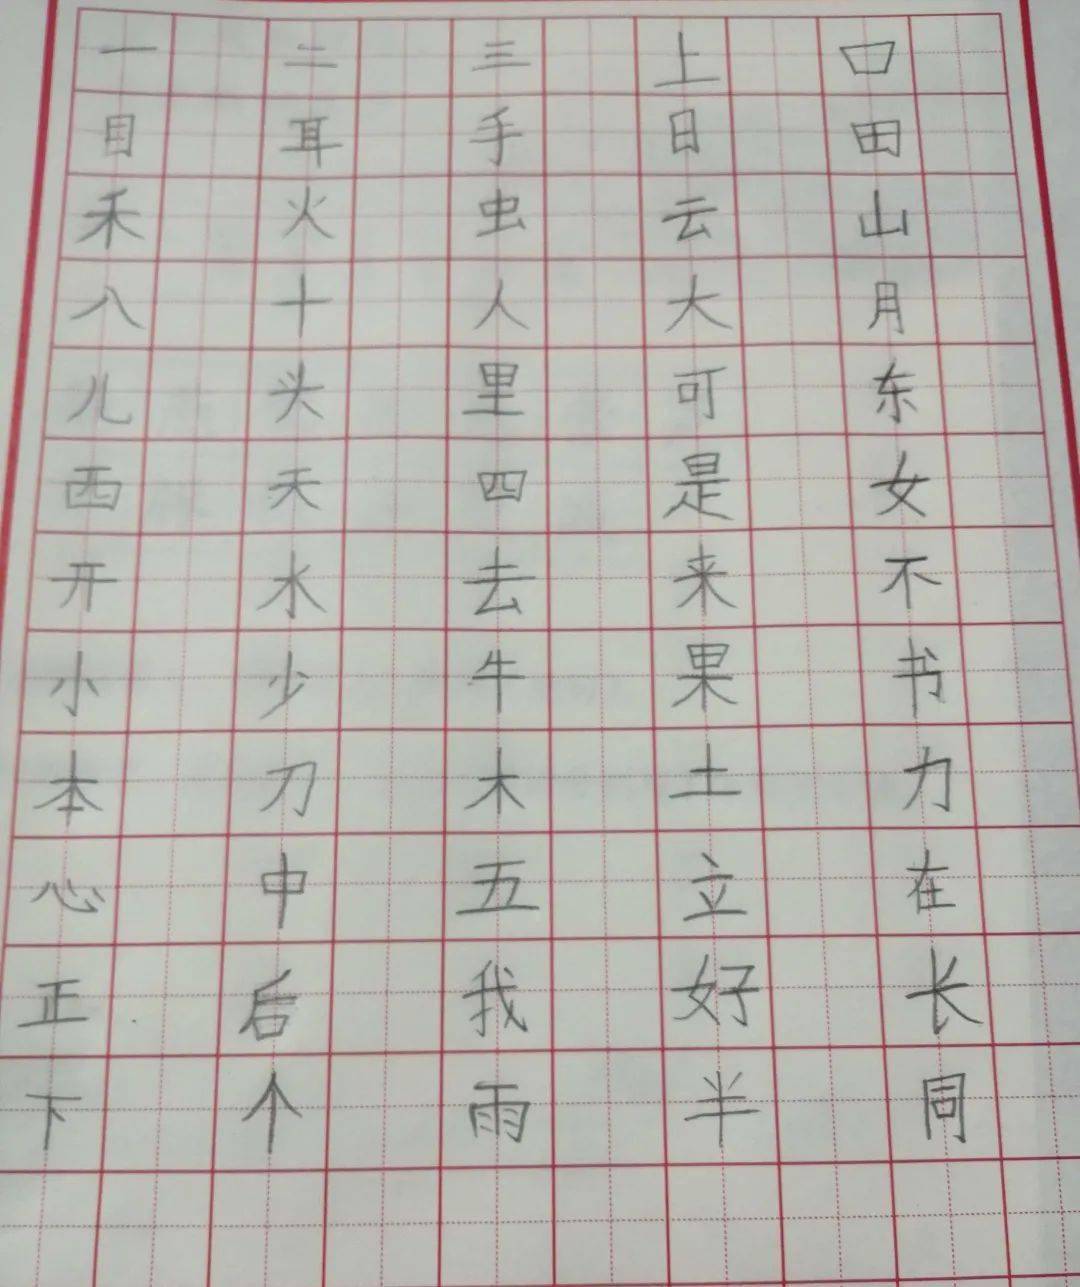 一 二 三 上 口
目 耳 手 日 田
禾 火 虫 云 山
八 十 人 大 月
儿 头 里 可 东
西 天 四 是 女
开 水 去 来 不
小 少 牛 果 书
本 刀 木 土 力
心 中 五 立 在
正 后 我 好 长
下 个 雨 半 同